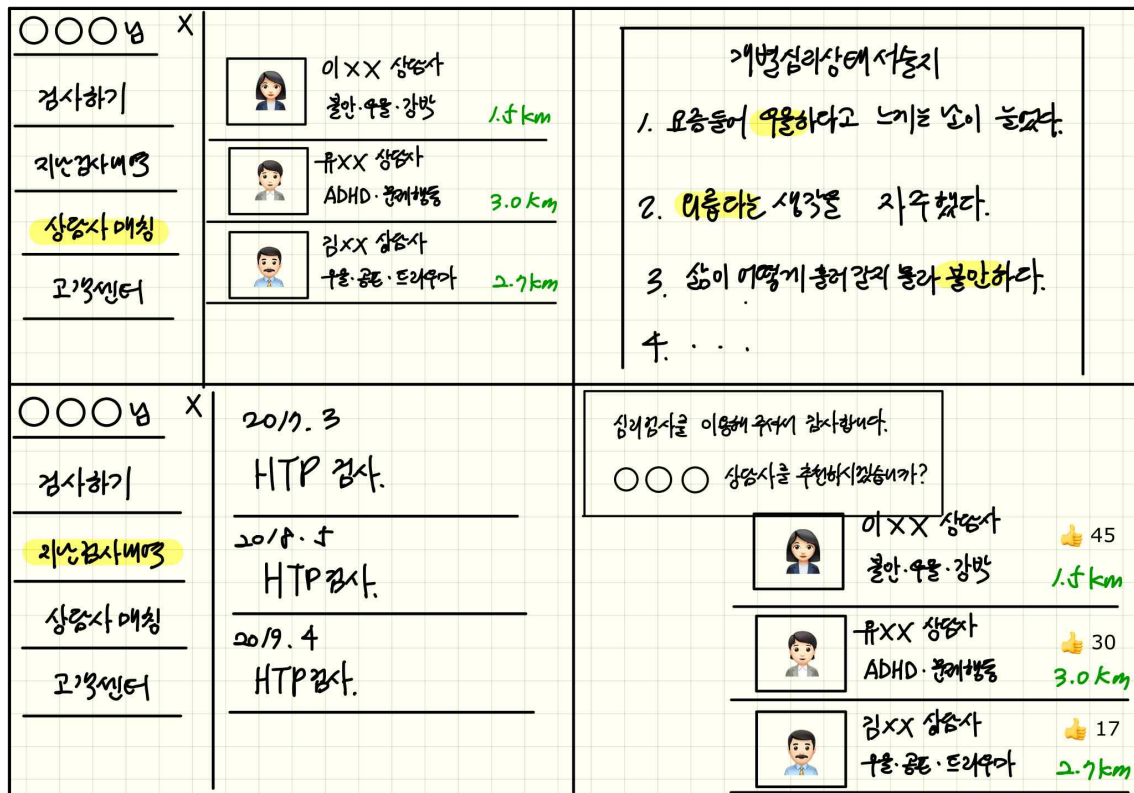 ○○○님 X
검사하기
지난검사내역
상담사 매칭
고객센터
이XX 상담사
불안·우울·강박
1.5km
유XX 상담사
ADHD·문제행동
3.0km
김XX 상담사
우울·공포·트라우마
2.7km
개별심리상태 서술지
1. 요즘들어 우울하다고 느끼는 날이 늘었다.
2. 외롭다는 생각을 자주했다.
3. 삶이 어떻게 흘러갈지 몰라 불안하다.
4. . . .
○○○님 X
검사하기
지난검사내역
상담사 매칭
고객센터
2017. 3
HTP 검사.
2018. 5
HTP검사.
2019. 4
HTP검사.
심리검사를 이용해 주셔서 감사합니다.
○○○ 상담사를 추천하시겠습니까?
이XX 상담사
👍 45
불안·우울·강박
1.5km
유XX 상담사
👍 30
ADHD·문제행동
3.0km
김XX 상담사
👍 17
우울·공포·트라우마
2.7km